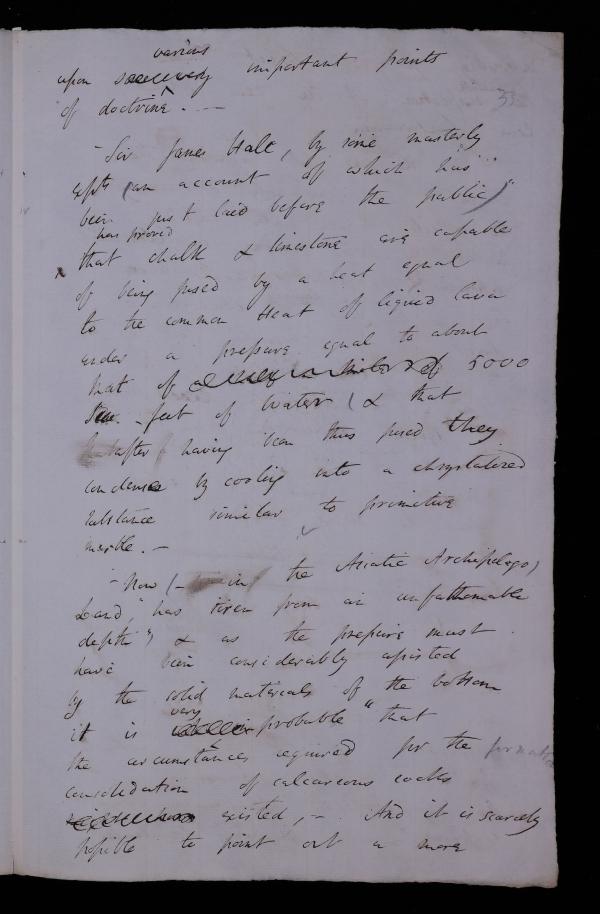 various
upon important points
of doctrine. —
33
- Sir James Hall, by some masterly
expts (an account of which has
been just laid before the public)
has proved
that chalk & limestone are capable
of being fused by a heat equal
to the common Heat of liquid lava
under a pressure equal to about
that of 5000
feet of Water (& that
after having been thus fused they
condense by cooling into a chrystalized
substance similar to primitive
marble. —
- Now (- in the Asiatic Archipelago)
Land, "has risen from an unfathomable
depth") & as the pressure must
have been considerably assisted
by the solid materials of the bottom
very
it is probable "that
the circumstances required for the formation
consolidation of calcareous rocks
existed, - And it is scarcely
possible to point out a more